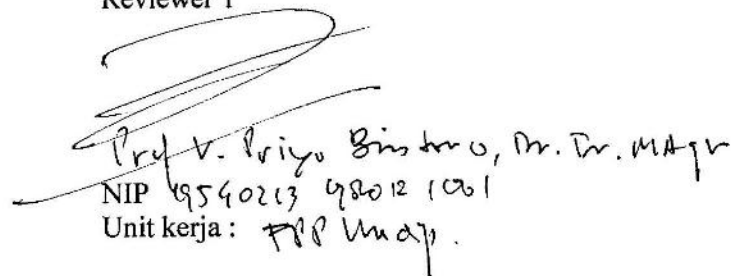 Reviewer 1
Prof V. Priyo Bintoro, Dr. Ir. MAgr
NIP 19540213 198012 1001
Unit kerja : FPP Undip.